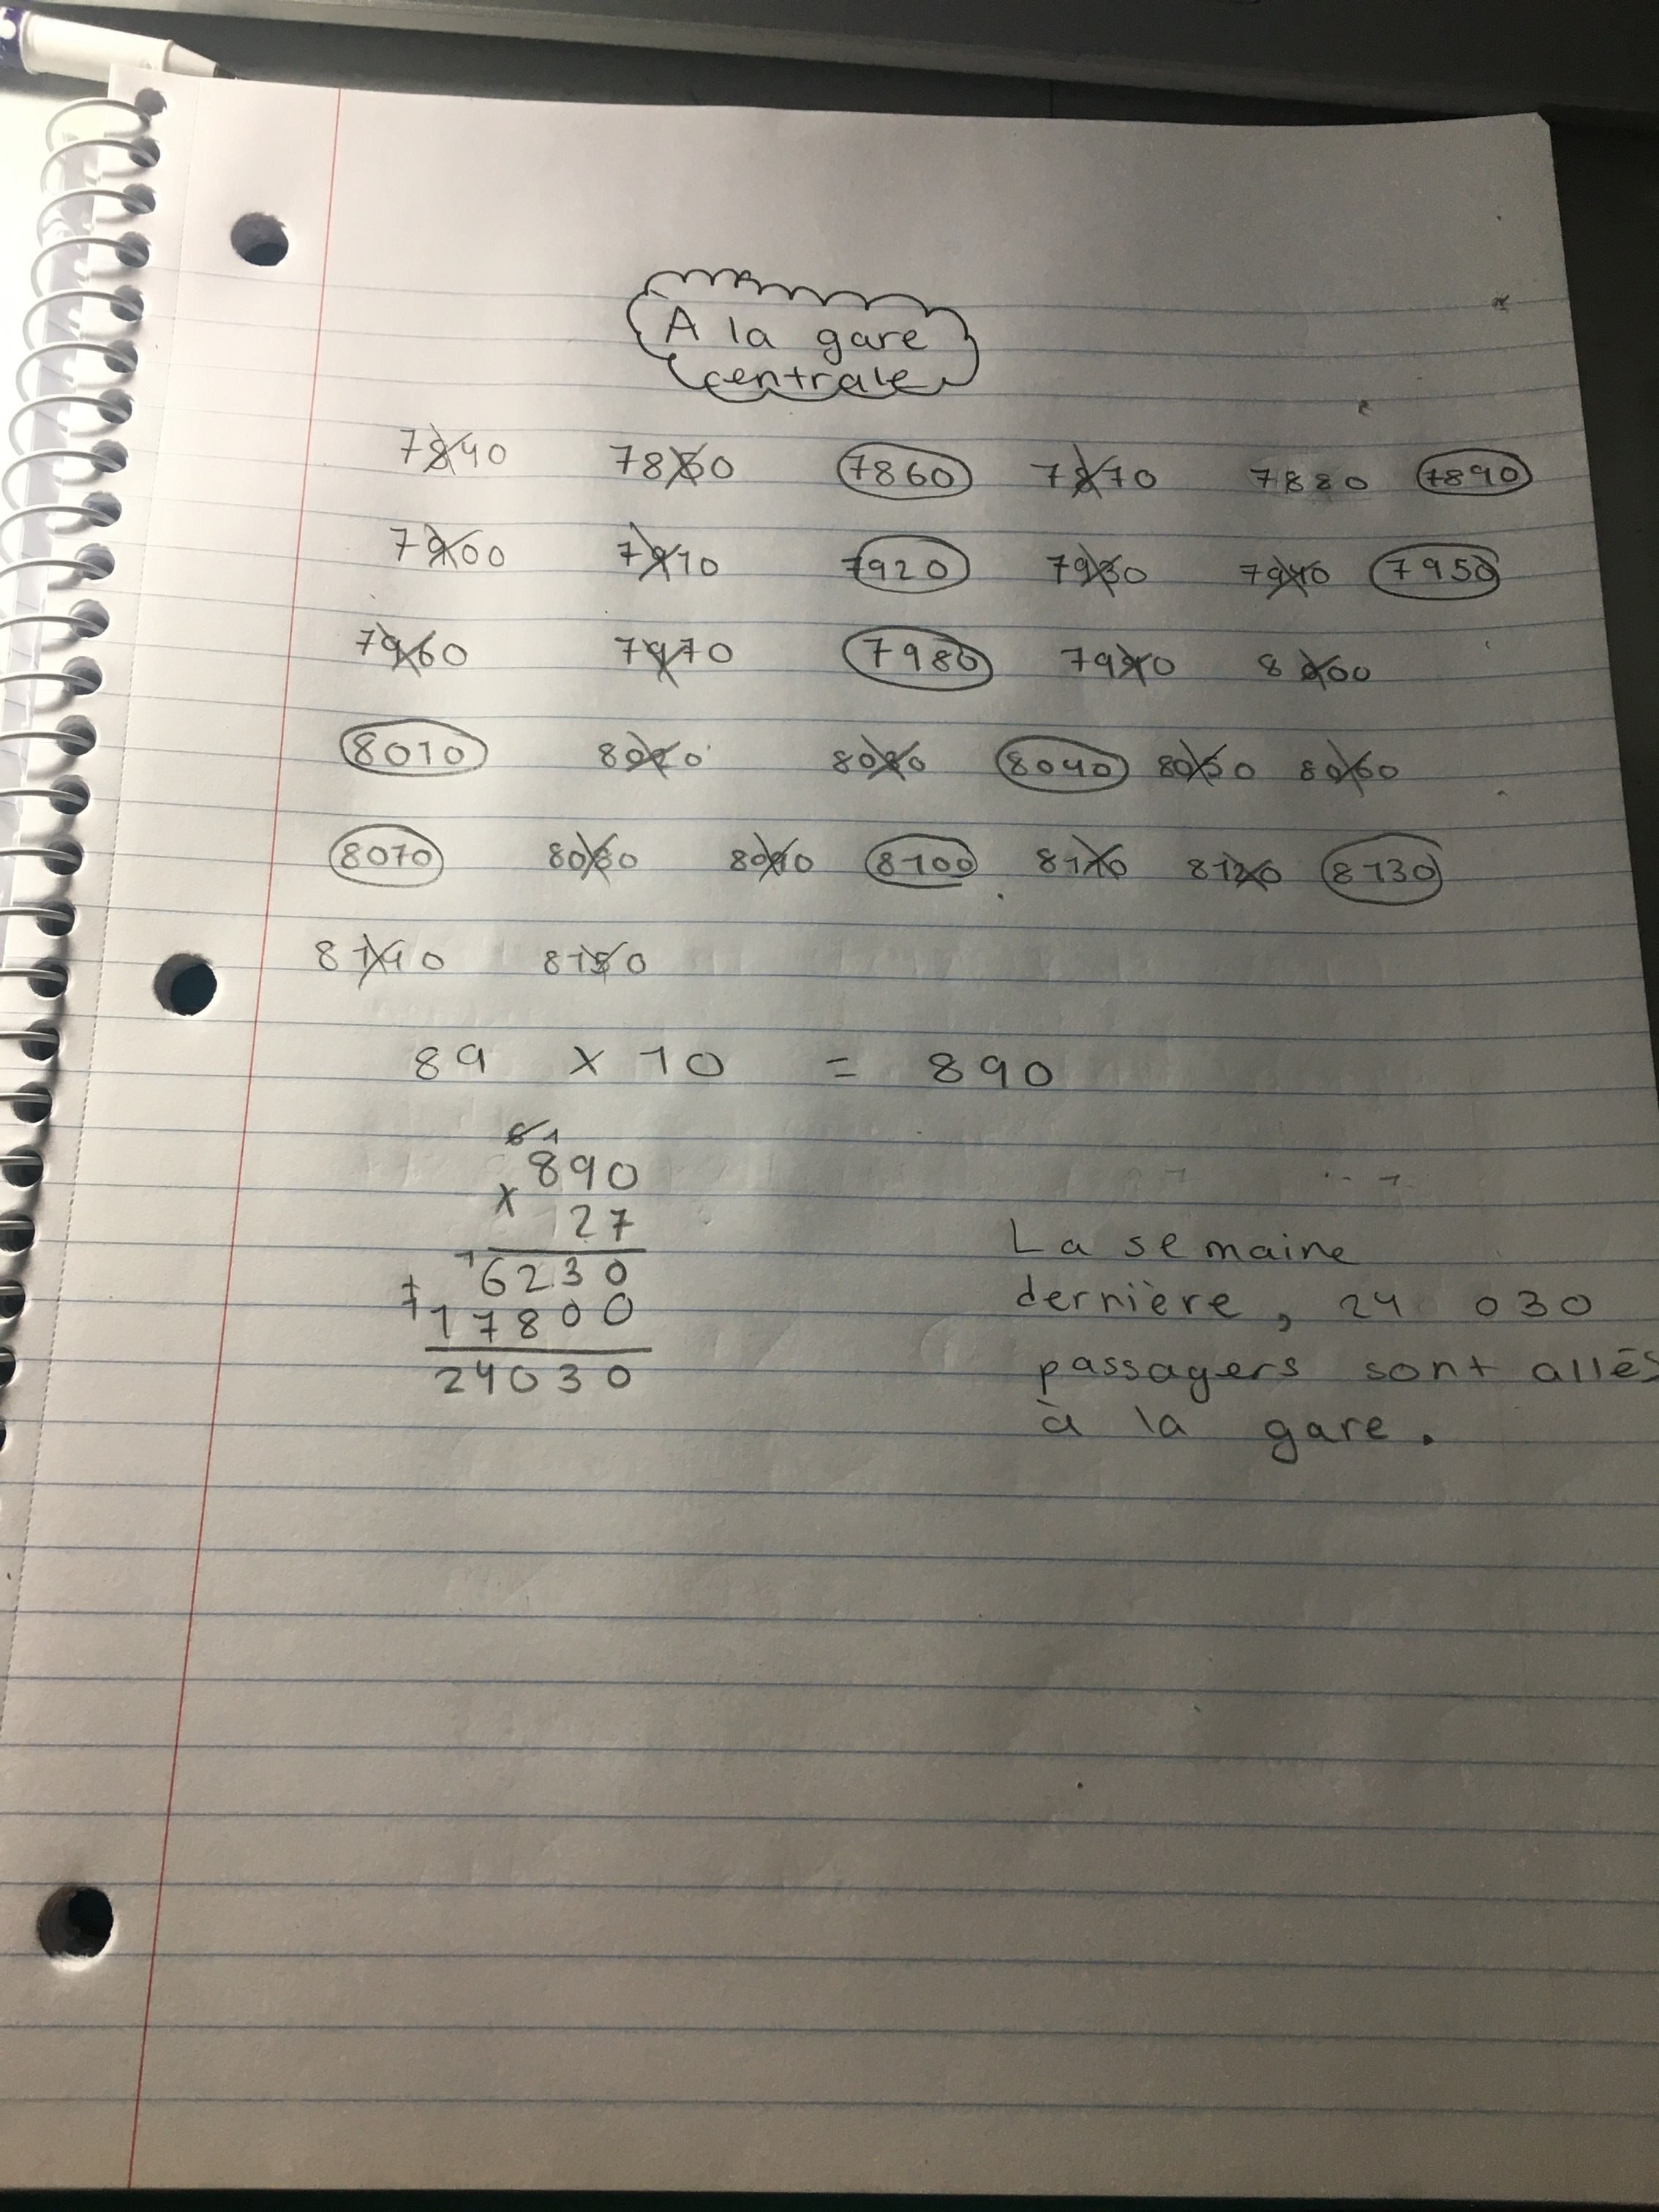 A la gare
centrale
7840 7850 7860 7870 7880 7890
7900 7910 7920 7930 7940 7950
7960 7970 7980 7990 8000
8010 8020 8030 8040 8050 8060
8070 8080 8090 8100 8110 8120 8130
8140 8150
89 x 10 = 890
6 1
890
x 27
1 6230
+ 17800
24030
La semaine
dernière, 24 030
passagers sont allés
à la gare.